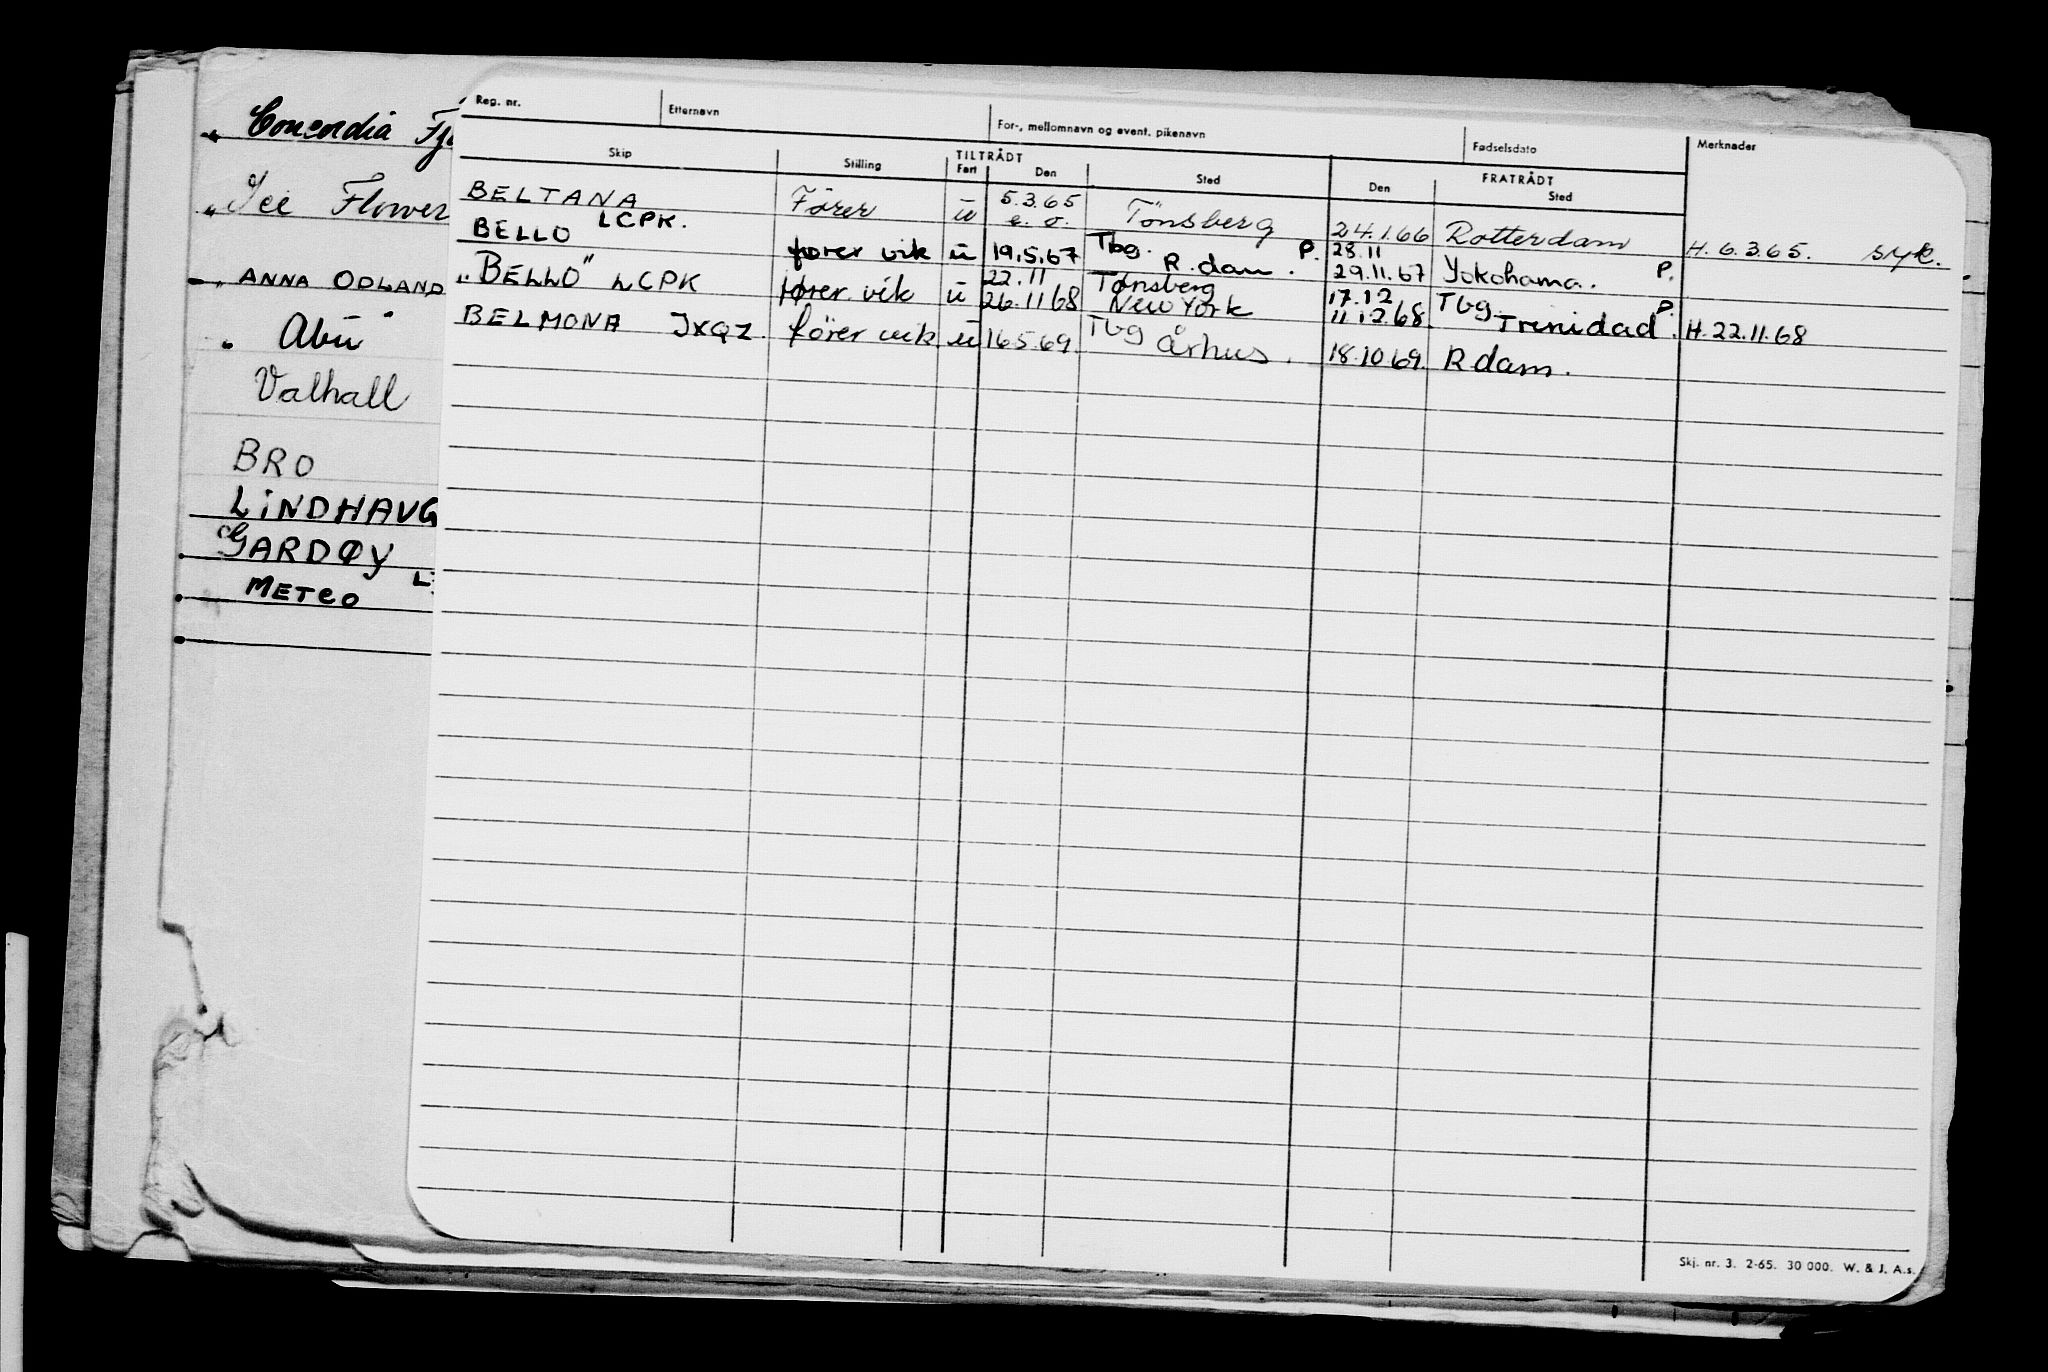 Concordia
Ice Flower
ANNA ODLAND
Abu
Valhall
BRO
LINDHAUG
GARDØY
METCO
Reg. nr. Etternavn For-, mellomnavn og event. pikenavn Fødselsdato Merknader
Skip Stilling TILTRÅDT FRATRÅDT
Fart Den Sted Den Sted
BELTANA Fører u 5.3.65 e. o. Tönsberg 24.1.66 Rotterdam H. 6.3.65. syk.
BELLO LCPK. fører vik u 19.5.67 Tbg. R.dam. P. 28.11 29.11.67 Yokohama. P.
"BELLO" LCPK fører vik u 22.11 26.11 68 Tønsberg New York 17.12 11.12.68 Tbg P. Trinidad. H. 22.11.68
BELMONA JXQZ. förer vik u 16.5.69. Tbg Århus. 18.10.69. R dam.
Skj. nr. 3. 2-65. 30 000. W. & J. A.s.